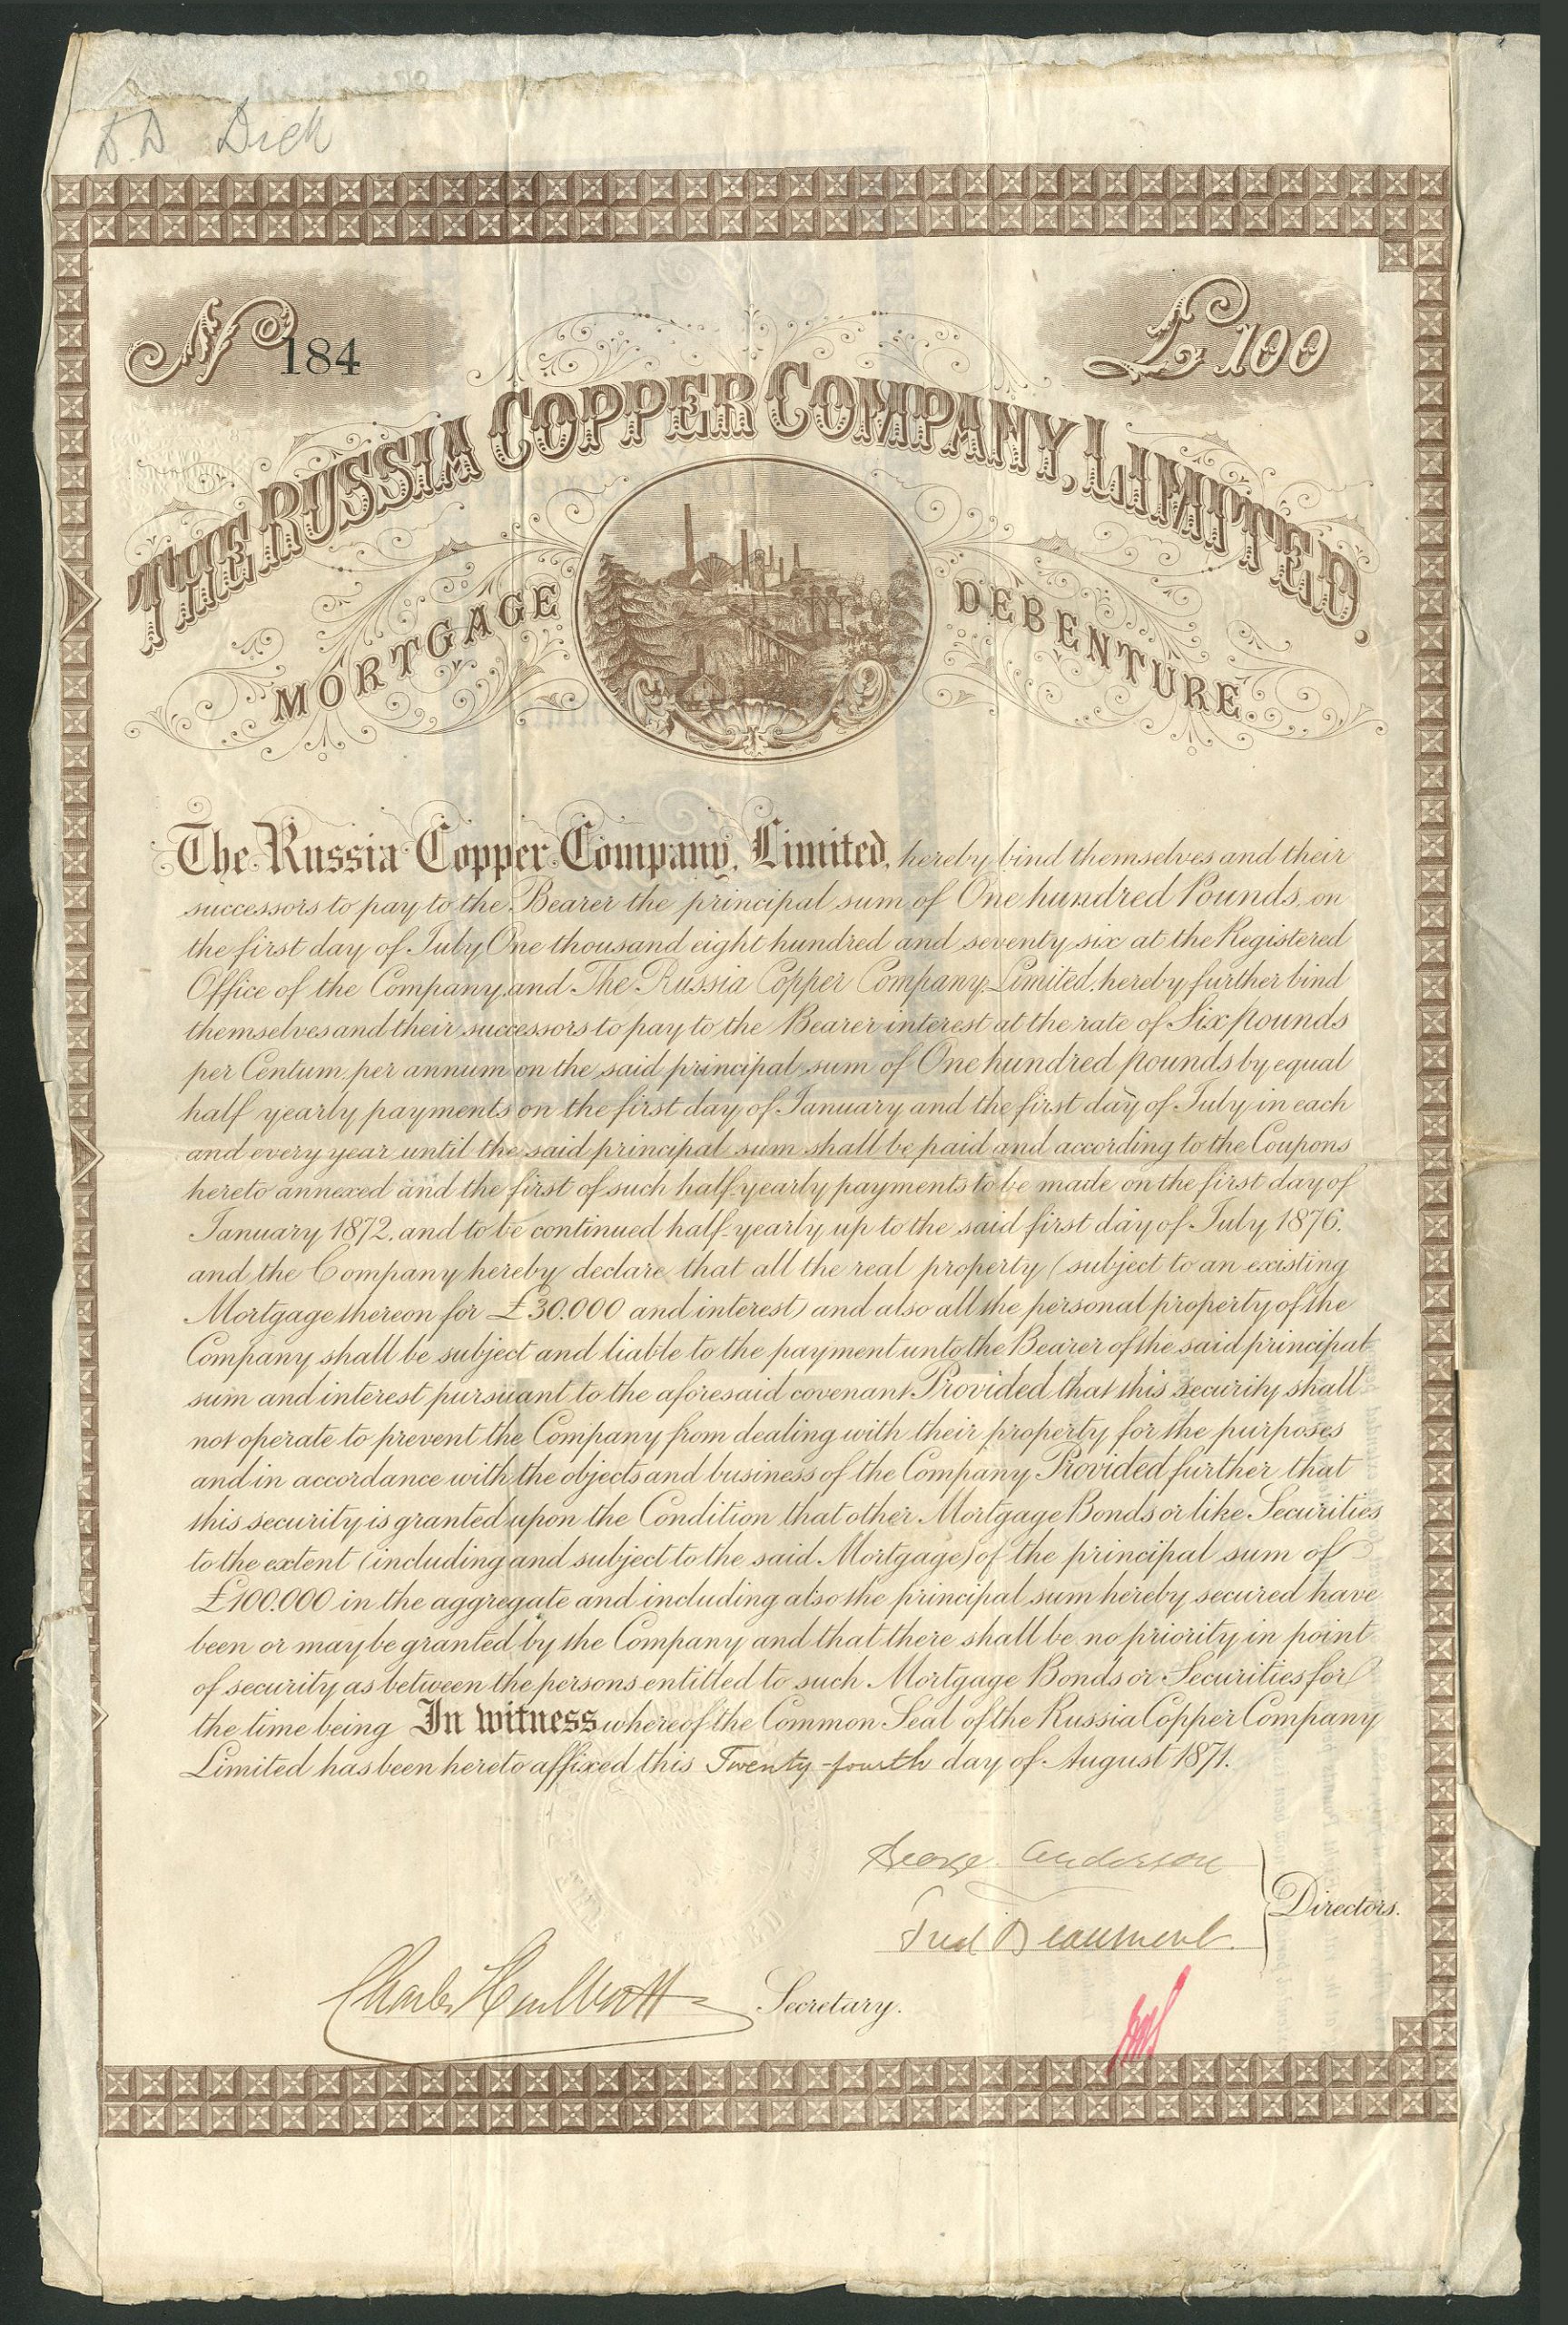 D.D Dick
No 184
£100
THE RUSSIA COPPER COMPANY, LIMITED.
MORTGAGE DEBENTURE.
The Russia Copper Company, Limited, hereby bind themselves and their
successors to pay to the Bearer the principal sum of One hundred Pounds, on
the first day of July One thousand eight hundred and seventy six at the Registered
Office of the Company, and The Russia Copper Company, Limited, hereby further bind
themselves and their successors to pay to the Bearer interest at the rate of Six pounds
per Centum per annum on the said principal sum of One hundred pounds by equal
half yearly payments on the first day of January and the first day of July in each
and every year until the said principal sum shall be paid and according to the Coupons
hereto annexed and the first of such half-yearly payments to be made on the first day of
January 1872, and to be continued half-yearly up to the said first day of July 1876.
and the Company hereby declare that all the real property (subject to an existing
Mortgage thereon for £30.000 and interest) and also all the personal property of the
Company shall be subject and liable to the payment unto the Bearer of the said principal
sum and interest pursuant to the aforesaid covenant Provided that this security shall
not operate to prevent the Company from dealing with their property for the purposes
and in accordance with the objects and business of the Company Provided further that
this security is granted upon the Condition that other Mortgage Bonds or like Securities
to the extent (including and subject to the said Mortgage) of the principal sum of
£100.000 in the aggregate and including also the principal sum hereby secured have
been or may be granted by the Company and that there shall be no priority in point
of security as between the persons entitled to such Mortgage Bonds or Securities for
the time being In witness whereof the Common Seal of the Russia Copper Company
Limited has been hereto affixed this Twenty-fourth day of August 1871.
George Anderson
Fred Beaumont
Directors.
Charles Secretary.